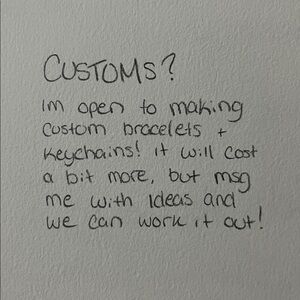 CUSTOMS?
Im open to making
custom bracelets +
keychains! it will cost
a bit more, but msg
me with Ideas and
we can work it out!